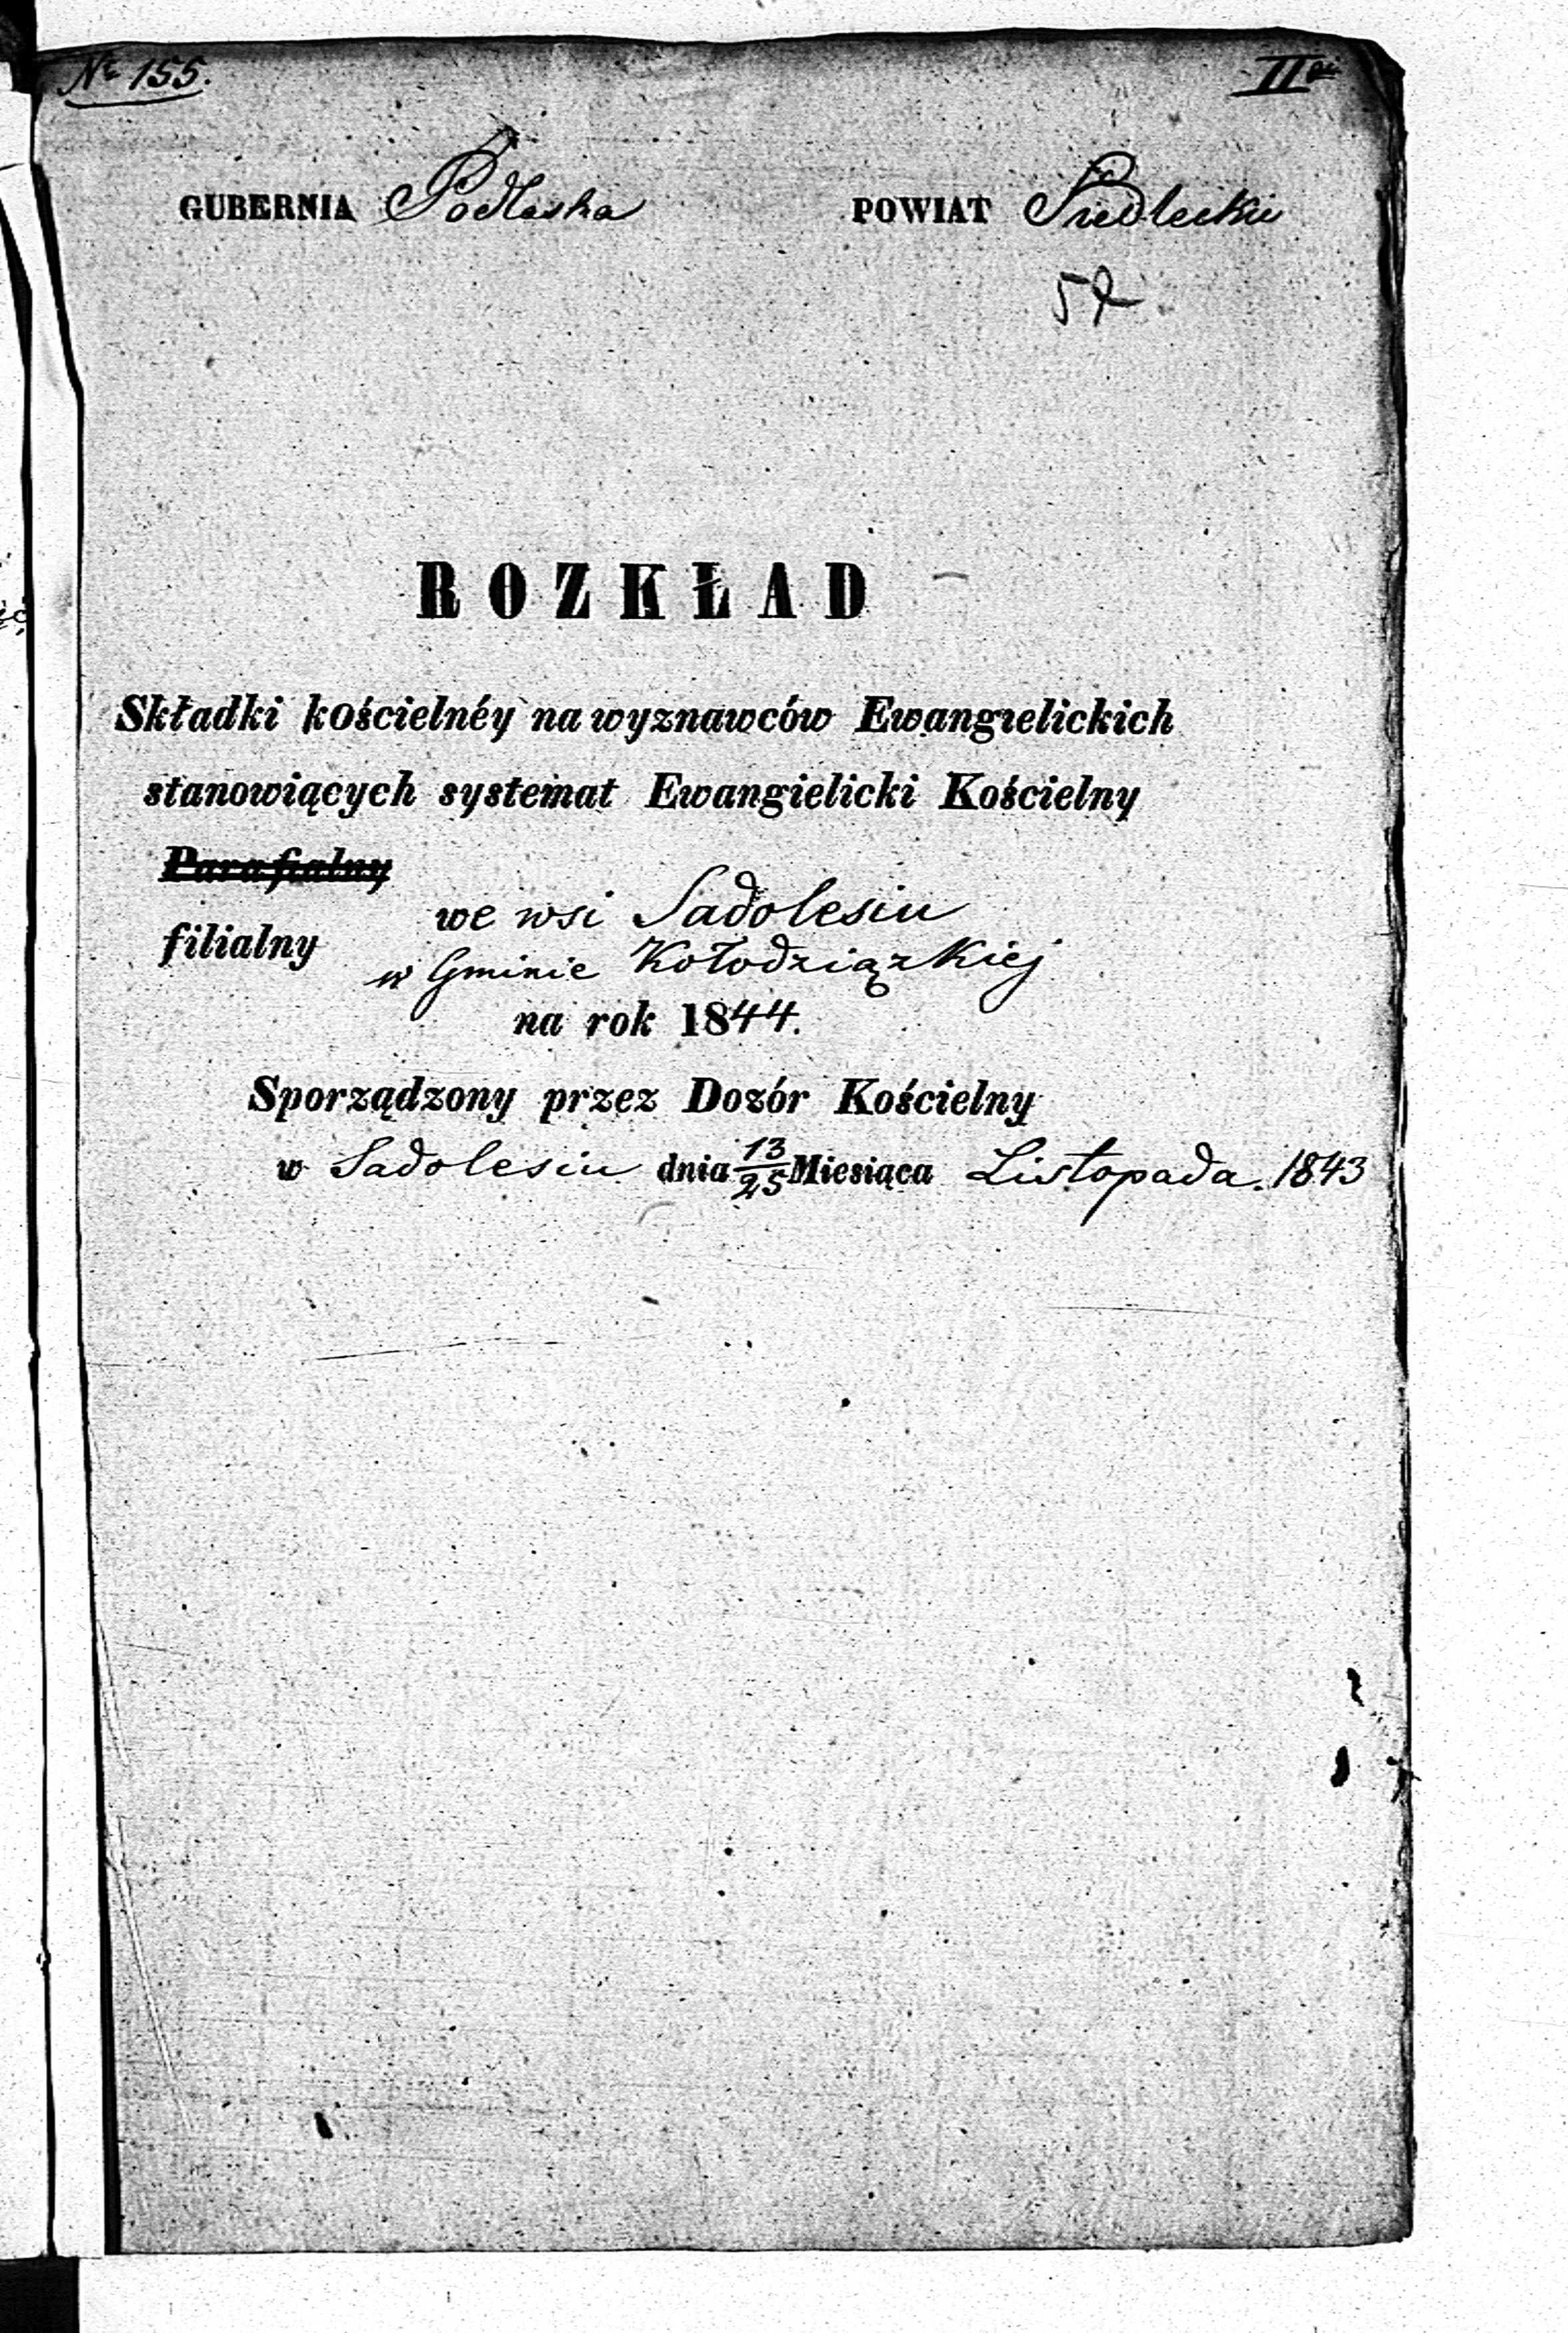 № 155. IIa
GUBERNIA Podlaska POWIAT Siedlecki
57
ROZKŁAD
Składki kościelnéy na wyznawców Ewangielickich
stanowiących systemat Ewangielicki Kościelny
Parafialny
we wsi Sadolesiu
filialny
w Gminie Kołodziązkiej
na rok 1844.
Sporządzony przez Dozór Kościelny
w Sadolesiu dnia 13/25 Miesiąca Listopada. 1843